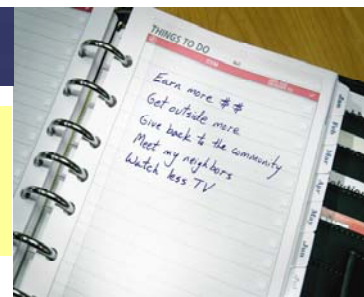 THINGS TO DO
Earn more $$
Get outside more
Give back to the community
Meet my neighbors
Watch less TV
Jan
Feb
Mar
Apr
May
Jun